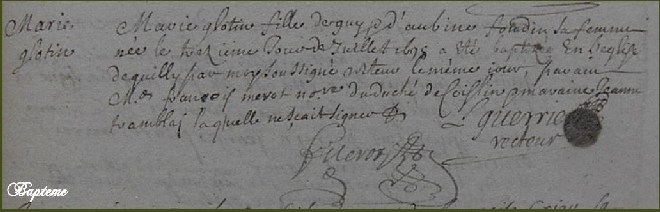 Marie
glotin
Marie glotin fille de guy et d'aubine fondin sa femme
née le treizieme Jour de Juillet 1678 a été baptizée En leglise
de quilly par moy soussigné recteur le méme jour, parain
Me françois merot nore du duché de Coislin maraine Jeanne
tramblai laquelle ne sçait signer
L guerrie
recteur
F Merot
Bapteme